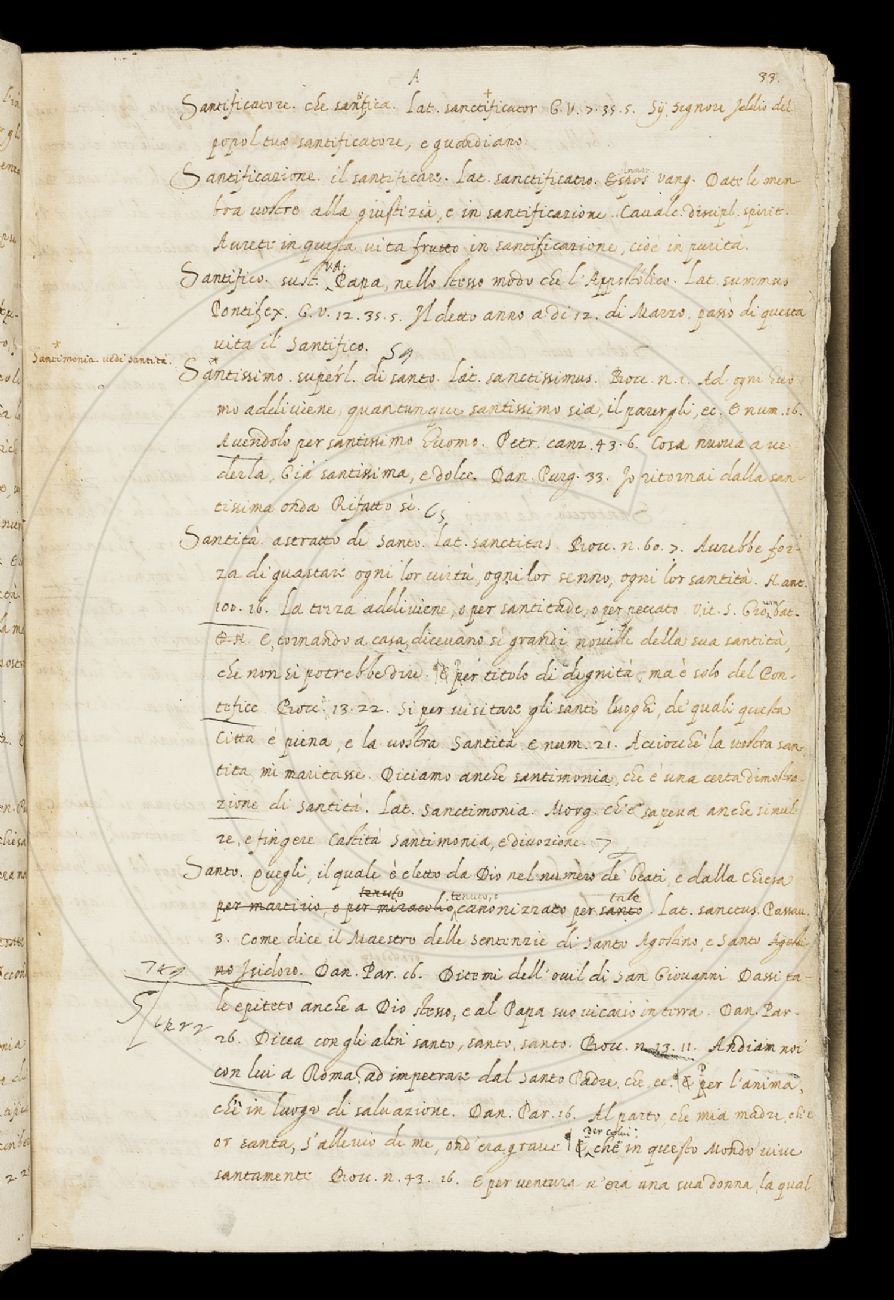 A
33.
Santificatore. che santifica. Lat. sanctificator G.V. 7. 35. 5. Sij Signore Iddio del
popol tuo santificatore, e guardiano
Santificazione. il santificare. Lat. sanctificatio. vang. Date le mem-
bra vostre alla giustizia, e in santificazione. Cavalc. discipl. spirit.
Avrete in questa vita frutto in santificazione, cioè in purità.
Santifico. sust. V.A. Papa, nello stesso modo che l'Appostolico. Lat. summus
Pontifex. G.V. 12. 35. 5. Il detto anno a dì 12. di Marzo passò di questa
vita il Santifico.
Santimonia. vedi santità.
Santissimo. superl. di santo. Lat. sanctissimus. Bocc. n. 1. Ad ogni huo
mo addiviene, quantunque santissimo sia, il parergli, ec. E num. 16.
Avendolo per santissimo huomo. Petr. canz. 43. 6. Cosa nuova a ve
derla, Già santissima, e dolce. Dan. Purg. 33. Io ritornai dalla san-
tissima onda Rifatto sì.
Santità. astratto di santo. Lat. sanctitas. Bocc. n. 60. 7. Avrebbe for-
za di guastare ogni lor virtù, ogni lor senno, ogni lor santità. N. ant.
100. 16. La terza addiviene, o per santitade, o per peccato. Vit. S. Gio. bat.
E, tornando a casa, dicevano sì grandi novelle della sua santità,
che non si potrebbe dire. per titolo di dignità, ma è solo del Pon-
tefice Bocc. 13. 22. Sì per visitare gli santi luoghi, de' quali questa
Città è piena, e la vostra Santità E num. 21. Acciocchè la vostra san-
tità mi maritasse. Diciamo anche santimonia, che è una certa dimostra-
zione di santità. Lat. Sanctimonia. Morg. ch' e' sapeva anche simula
re, e fingere Castità Santimonia, e divozione. 7
Santo. Quegli, il quale è eletto da Dio nel numero de' beati, e dalla chiesa
tenuto tenuto, tale
per martirio, o per miracolo, canonizzato per santo. Lat. sanctus. Passav.
3. Come dice il Maestro delle Sentenzie di Santo Agostino, e Santo
Isidoro. Dan. Par. 16. Ditemi dell'ovil di San Giovanni Dassi ta-
le epiteto anche a Dio stesso, e al Papa suo vicario in terra. Dan. Par.
26. Dicea con gli altri santo, santo, santo. Bocc. n. 13. 11. Andiam noi
con lui a Roma, ad impetrare dal Santo Padre, che ec. per l'anima,
ch'è in luogo di salvazione. Dan. Par. 16. Al parto, che mia madre, ch'è
or santa, S'alleviò di me, ond'era grave per colui, che in questo Mondo vive
santamente Bocc. n. 43. 16. E per ventura v'era una sua donna, la qual